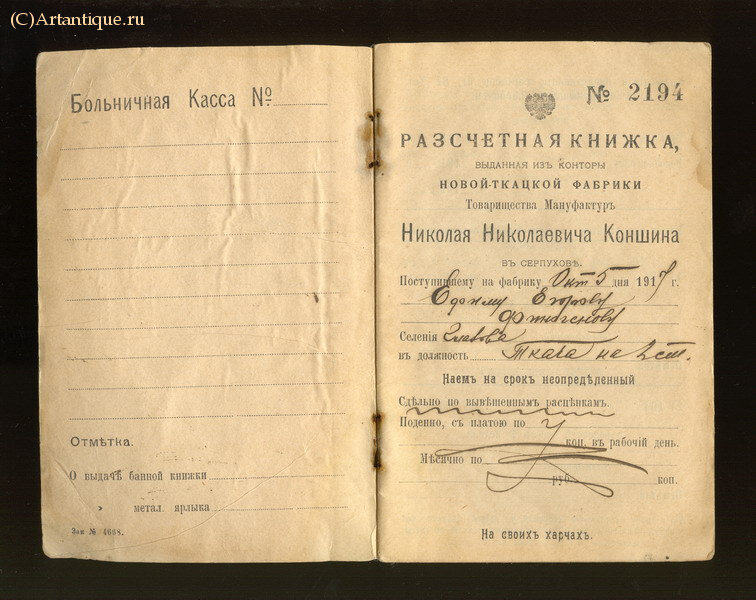 (C)Artantique.ru
Больничная Касса №
Отмѣтка.
О выдачѣ банной книжки
» метал. ярлыка
Зак № 4668.
№ 2194
РАЗСЧЕТНАЯ КНИЖКА,
ВЫДАННАЯ ИЗЪ КОНТОРЫ
НОВОЙ-ТКАЦКОЙ ФАБРИКИ
Товарищества Мануфактуръ
Николая Николаевича Коншина
ВЪ СЕРПУХОВѢ.
Поступившему на фабрику Окт 5 дня 1917 г.
Ефиму Егорову
Финогенову
Селенія Глазова
въ должность Ткача на 2 ст.
Наемъ на срокъ неопредѣленный
Сдѣльно по вывѣшеннымъ расцѣнкамъ.
Поденно, съ платою по
коп. въ рабочій день.
Мѣсячно по
руб. коп.
На своихъ харчахъ.